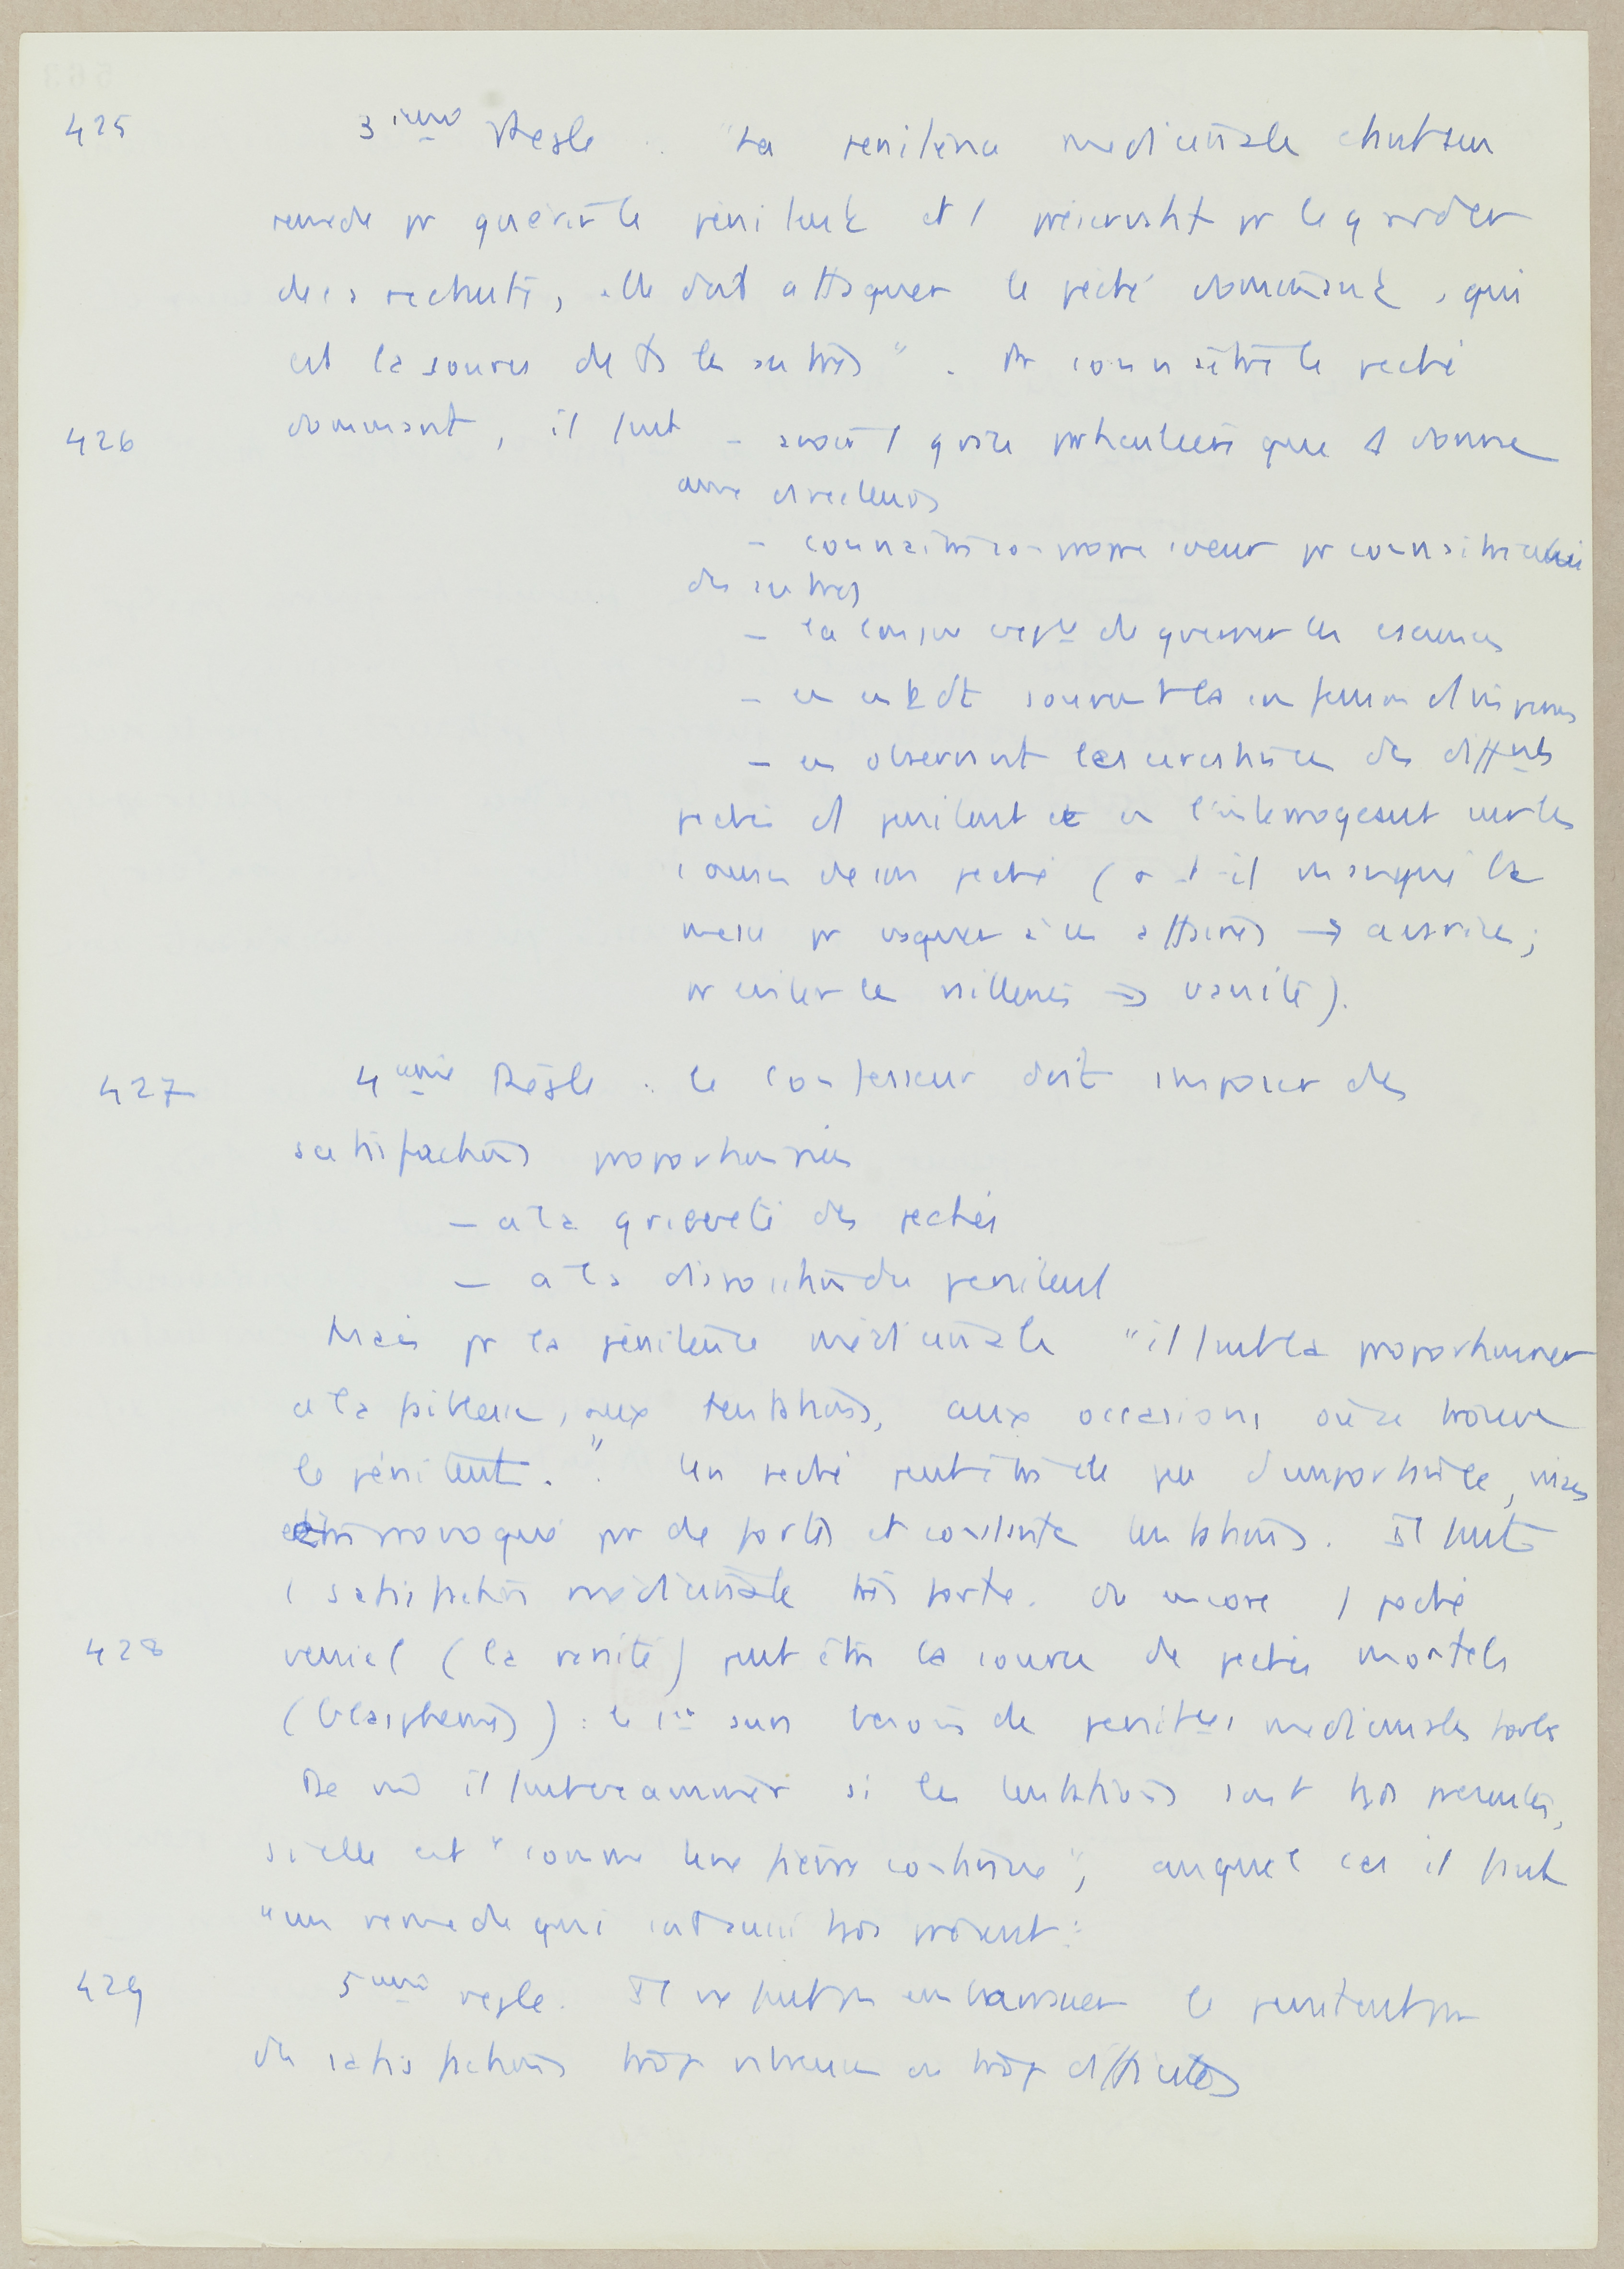 425 3ième Règle. "La penitence medicinale étant un
remede pr guérir le pénitent et 1 préservatif pr le garder
des rechutes, elle doit attaquer le péché dominant, qui
est la source de ts les autres". Pr connaître le péché
426 dominant, il faut - avoir 1 grâce particulière que D donne
aux directeurs
- connaître son propre coeur pr connaître celui
des autres
- la longue expce de gouverner les consciences
- en entdt souvent la confession d mes pers
- en observant les circonstances des diffents
péchés d penitent et en l'interrogeant sur les
causes de son péché (a-t-il manqué la
messe pr vaquer à ses affaires → avarice;
pr éviter les railleries → vanité).
427 4ème Règle : le confesseur doit imposer des
satisfactions proportionnées
- à la grieveté des péchés
- à la disposition du penitent
Mais pr la pénitence médicinale "il faut la proportionner
à la faiblesse, aux tentations, aux occasions où se trouve
le pénitent.". Un péché peut être de peu d'importance, mais
être provoqué pr de fortes et constantes tentations. Il faut
1 satisfaction médicinale très forte. Ou encore 1 péché
428 veniel (la vanité) peut être la source de péchés mortels
(blasphemes) : le 1er aura besoin de penitces medicinales fortes
De mê il faut examiner si les tentations sont très pressantes,
si elle est "comme une fièvre continue", auquel cas il faut
"un remede qui soit aussi très présent".
429 5ème regle. Il ne faut pas embarrasser le penitent pr
des satisfactions trop nbreuses ou trop difficiles